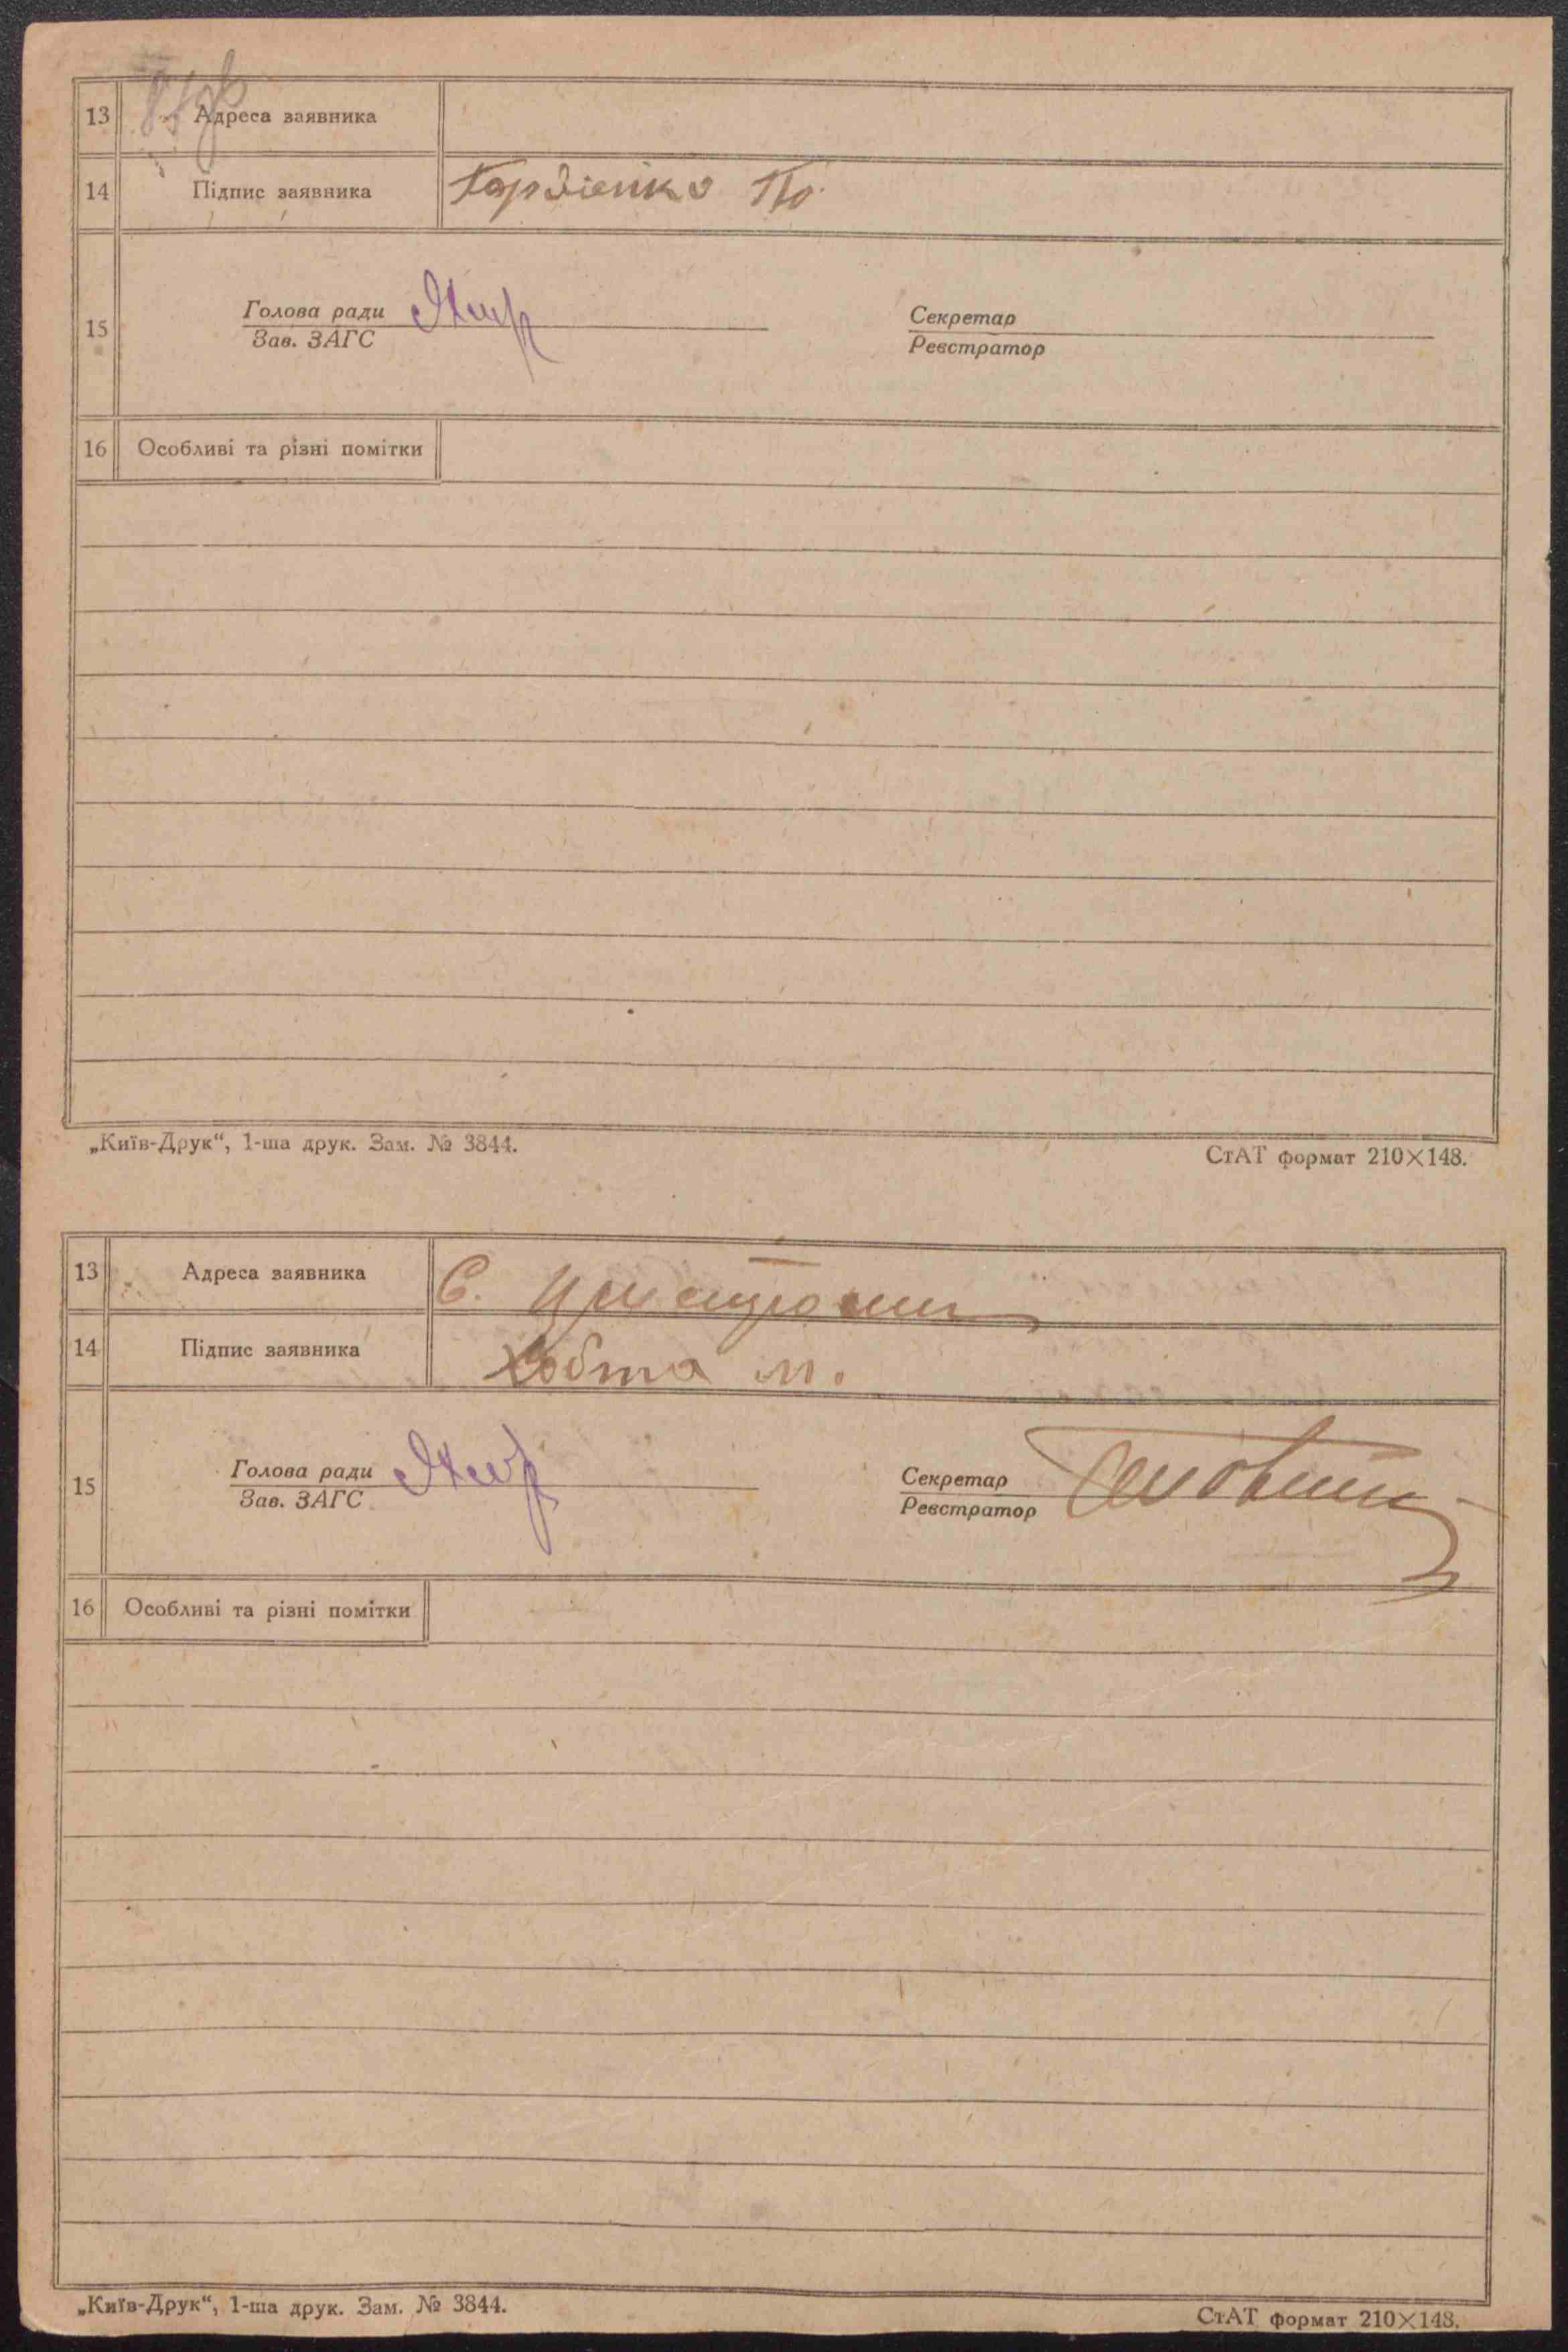 13 Адреса заявника
14 Підпис заявника Гордієнко
15 Голова ради Секретар
Зав. ЗАГС Реєстратор
16 Особливі та різні помітки
„Київ-Друк“, 1-ша друк. Зам. № 3844. СтАТ формат 210×148.
13 Адреса заявника С.
14 Підпис заявника Хобта М.
15 Голова ради Секретар
Зав. ЗАГС Реєстратор
16 Особливі та різні помітки
„Київ-Друк“, 1-ша друк. Зам. № 3844. СтАТ формат 210×148.